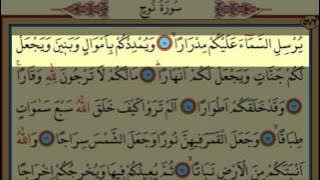 سُورَةُ نُوحٍ
٥٧٢
يُرْسِلِ السَّمَاءَ عَلَيْكُمْ مِدْرَارًا ۝ وَيُمْدِدْكُمْ بِأَمْوَالٍ وَبَنِينَ وَيَجْعَلْ
لَكُمْ جَنَّاتٍ وَيَجْعَلْ لَكُمْ أَنْهَارًا ۝ مَالَكُمْ لَا تَرْجُونَ لِلَّهِ وَقَارًا ۝
وَقَدْ خَلَقَكُمْ أَطْوَارًا ۝ أَلَمْ تَرَوْا كَيْفَ خَلَقَ اللَّهُ سَبْعَ سَمٰوَاتٍ
طِبَاقًا ۝ وَجَعَلَ الْقَمَرَ فِيهِنَّ نُورًا وَجَعَلَ الشَّمْسَ سِرَاجًا ۝ وَاللَّهُ
أَنْبَتَكُمْ مِنَ الْأَرْضِ نَبَاتًا ۝ ثُمَّ يُعِيدُكُمْ فِيهَا وَيُخْرِجُكُمْ إِخْرَاجًا